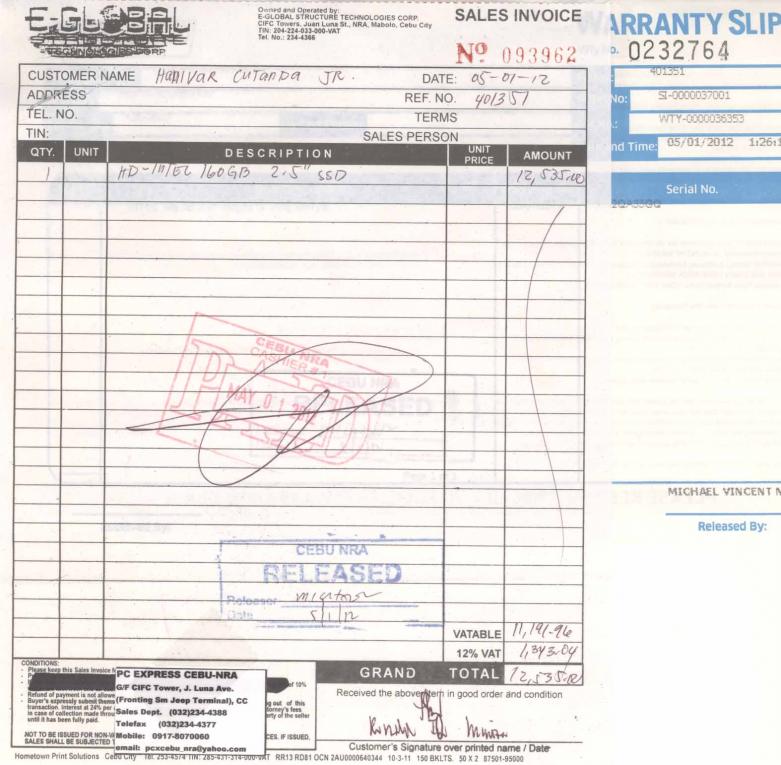 E-GLOBAL
STRUCTURE
TECHNOLOGIES CORP.
Owned and Operated by:
E-GLOBAL STRUCTURE TECHNOLOGIES CORP.
CIFC Towers, Juan Luna St., NRA, Mabolo, Cebu City
TIN: 204-224-033-000-VAT
Tel. No.: 234-4366
SALES INVOICE
Nº 093962
CUSTOMER NAME Hanivar Cutanda Jr. DATE: 05-01-12
ADDRESS REF. NO. 401351
TEL. NO. TERMS
TIN: SALES PERSON
QTY. UNIT DESCRIPTION UNIT PRICE AMOUNT
1 HD-INTEL 160GB 2.5" SSD 12,535.00
CEBU NRA
CASHIER # 1
PAID
MAY 01 2012
CEBU NRA
RELEASED
Releaser
Date 5/1/12
VATABLE 11,191.96
12% VAT 1,343.04
GRAND TOTAL 12,535.00
CONDITIONS:
- Please keep this Sales Invoice
of 10%
- Refund of payment is not allowe
- Buyer's expressly submit thems
transaction. Interest at 24% per
in case of collection made throu
until it has been fully paid.
g out of this
torney's fees
erty of the seller
NOT TO BE ISSUED FOR NON-V
CES. IF ISSUED,
SALES SHALL BE SUBJECTED T
PC EXPRESS CEBU-NRA
G/F CIFC Tower, J. Luna Ave.
(Fronting Sm Jeep Terminal), CC
Sales Dept. (032)234-4388
Telefax (032)234-4377
Mobile: 0917-8070060
email: pcxcebu_nra@yahoo.com
Received the above item in good order and condition
Customer's Signature over printed name / Date
Hometown Print Solutions Cebu City Tel. 253-4574 TIN: 285-431-314-000-VAT RR13 RD81 OCN 2AU0000640344 10-3-11 150 BKLTS. 50 X 2 87501-95000
WARRANTY SLIP
o. 0232764
401351
No: SI-0000037001
WTY-0000036353
nd Time: 05/01/2012 1:26:1
Serial No.
MICHAEL VINCENT N
Released By: